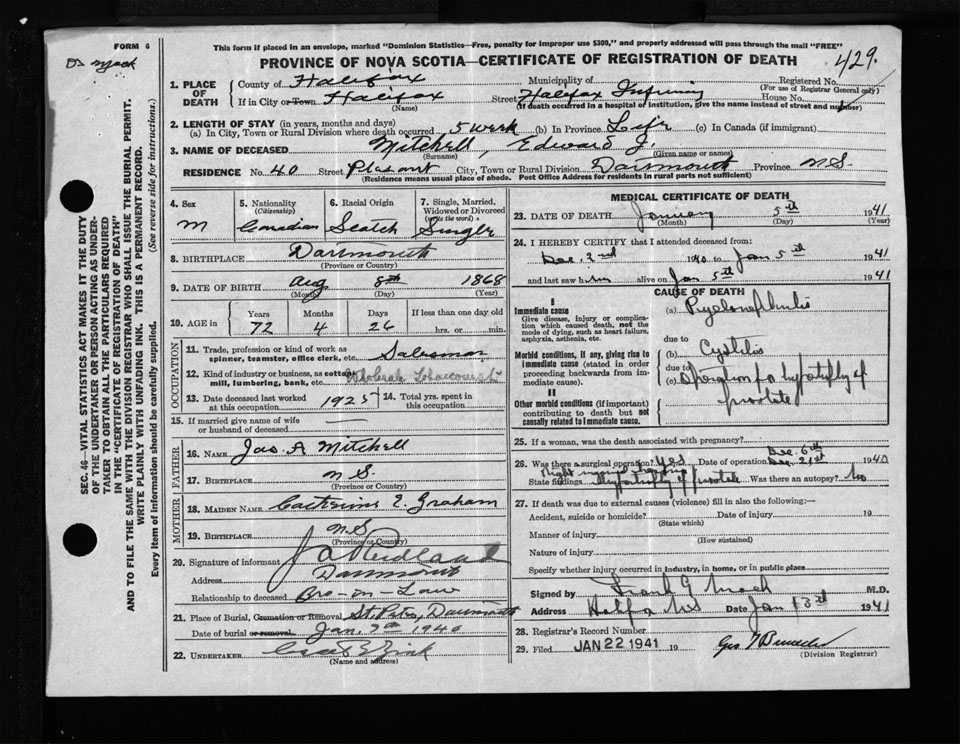 FORM 6
This form if placed in an envelope, marked "Dominion Statistics—Free, penalty for improper use $300," and properly addressed will pass through the mail "FREE"
PROVINCE OF NOVA SCOTIA—CERTIFICATE OF REGISTRATION OF DEATH
429.
1. PLACE OF DEATH
County of Halifax Municipality of Registered No.
(For use of Registrar General only)
If in City or Town Halifax Street Halifax House No.
(Name) (If death occurred in a hospital of institution, give the name instead of street and number)
2. LENGTH OF STAY (in years, months and days)
(a) In City, Town or Rural Division where death occurred 5 week (b) In Province Life (c) In Canada (if immigrant)
3. NAME OF DECEASED Mitchell, Edward J.
(Surname) (Given name or names)
RESIDENCE No. 40 Street Pleasant City, Town or Rural Division Dartmouth Province N.S.
(Residence means usual place of abode. Post Office Address for residents in rural parts not sufficient)
SEC. 46—VITAL STATISTICS ACT MAKES IT THE DUTY
OF THE UNDERTAKER OR PERSON ACTING AS UNDER-
TAKER TO OBTAIN ALL THE PARTICULARS REQUIRED
IN THE "CERTIFICATE OF REGISTRATION OF DEATH"
AND TO FILE THE SAME WITH THE DIVISION REGISTRAR WHO SHALL ISSUE THE BURIAL PERMIT.
WRITE PLAINLY WITH UNFADING INK. THIS IS A PERMANENT RECORD.
Every item of information should be carefully supplied. (See reverse side for instructions.)
4. Sex
M
5. Nationality
(Citizenship)
Canadian
6. Racial Origin
Scotch
7. Single, Married, Widowed or Divorced
(Write the word)
Single
8. BIRTHPLACE Dartmouth
(Province or Country)
9. DATE OF BIRTH Aug 8th 1868
(Month) (Day) (Year)
10. AGE in Years Months Days If less than one day old
72 4 26 hrs. or min.
OCCUPATION
11. Trade, profession or kind of work as
spinner, teamster, office clerk, etc. Salesman
12. Kind of industry or business, as cotton
mill, lumbering, bank, etc. Wholesale
13. Date deceased last worked
at this occupation 1925
14. Total yrs. spent in
this occupation.
15. If married give name of wife
or husband of deceased
FATHER
16. Name Jas. A Mitchell
17. Birthplace N.S.
(Province or Country)
MOTHER
18. MAIDEN NAME Catherine E. Graham
19. BIRTHPLACE N.S.
(Province or Country)
20. Signature of informant
Address Dartmouth
Relationship to deceased Bro-in-Law
21. Place of Burial, Cremation or Removal St. Peters, Dartmouth
Date of burial or removal Jan. 7th 1940
22. UNDERTAKER
(Name and address)
MEDICAL CERTIFICATE OF DEATH
23. DATE OF DEATH January 5th 1941
(Month) (Day) (Year)
24. I HEREBY CERTIFY that I attended deceased from:
Dec. 2nd 1940 to Jan 5th 1941
and last saw him alive on Jan 5th 1941
CAUSE OF DEATH
I
Immediate cause
Give disease, injury or compli-
cation which caused death, not the
mode of dying, such as heart failure,
asphyxia, asthenia, etc.
(a) Pyelonephritis
due to
Morbid conditions, if any, giving rise to
immediate cause (stated in order
proceeding backwards from im-
mediate cause).
(b) Cystitis
due to
(c) Operation for hypertrophy of
prostate
II
Other morbid conditions (if important)
contributing to death but not
causally related to immediate cause.
25. If a woman, was the death associated with pregnancy?
Dec. 6th
26. Was there a surgical operation? yes Date of operation Dec. 21st 1940
State findings Hypertrophy of prostate Was there an autopsy? No
27. If death was due to external causes (violence) fill in also the following:—
Accident, suicide or homicide? Date of injury 19
(State which)
Manner of injury
(How sustained)
Nature of injury
Specify whether injury occurred in industry, in home, or in public place
Signed by Frank G Mack M.D.
Address Halifax NS Date Jan 13rd 1941
28. Registrar's Record Number
29. Filed JAN 22 1941 19
(Division Registrar)